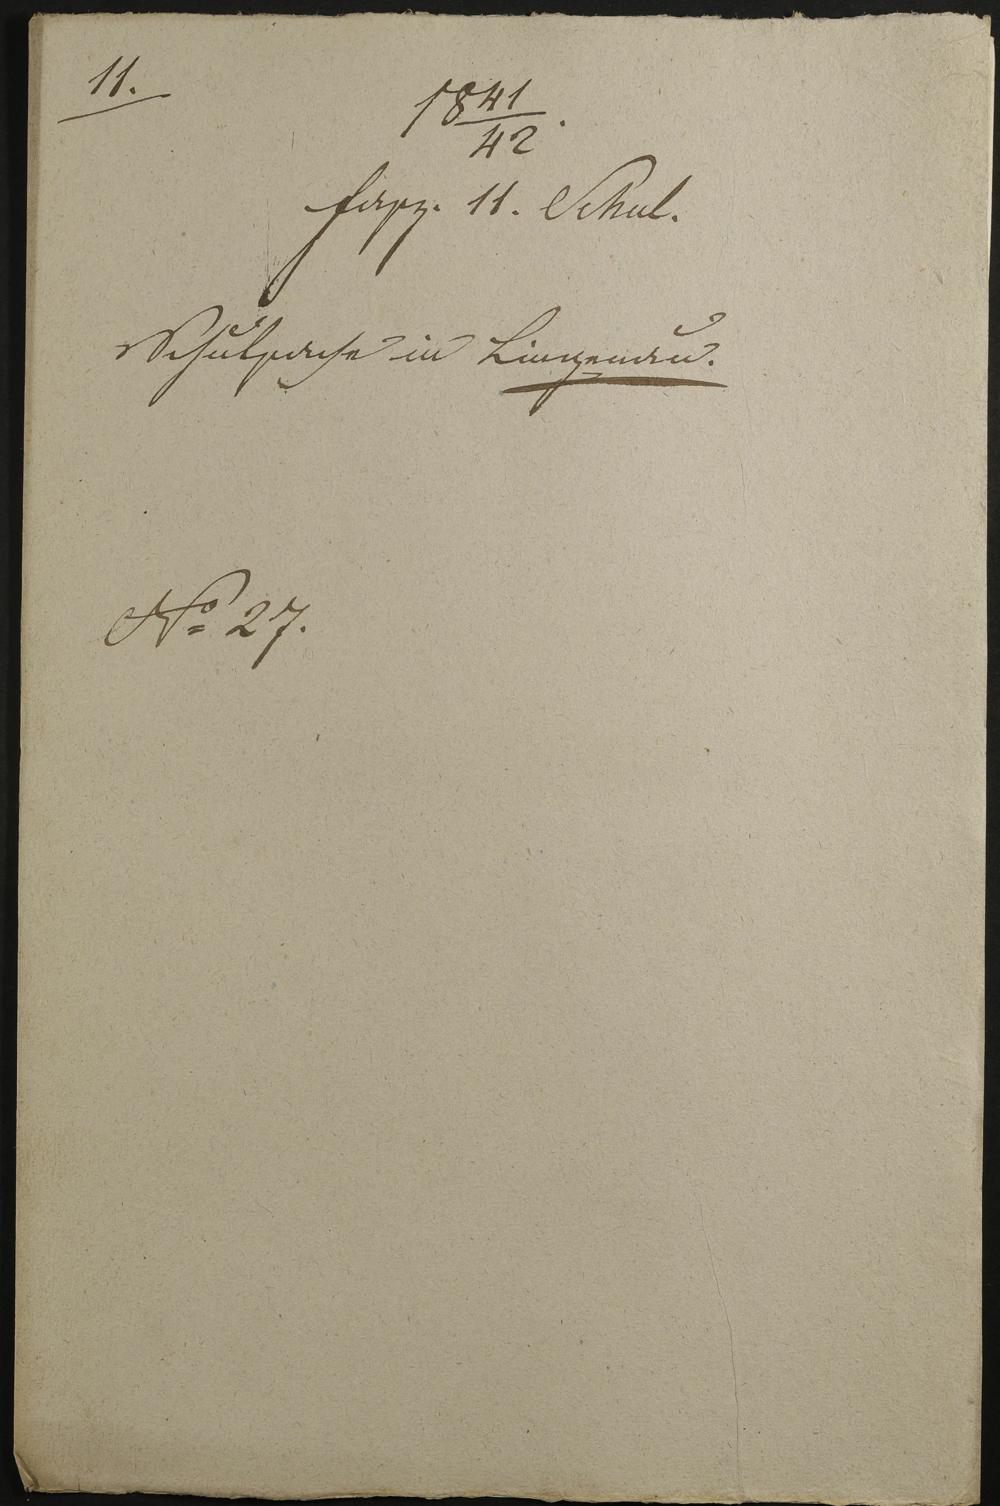 11.
1841/42.
fasz. 11. Schul.
Schulsache in Lingenau.
No 27.